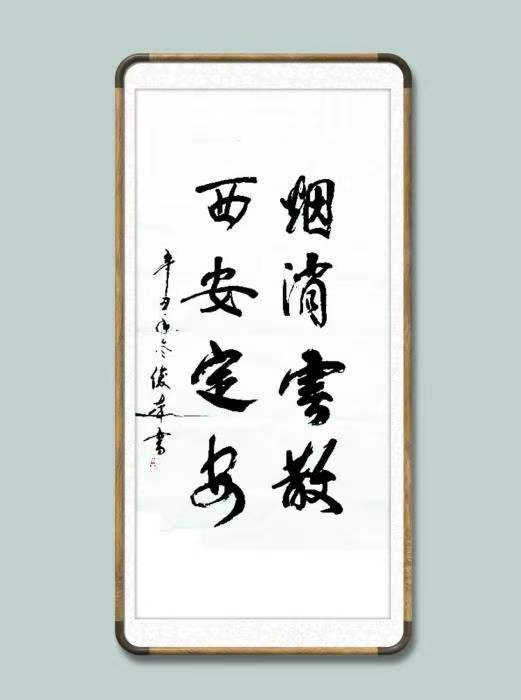 烟消雲散
西安定安
辛丑年冬俊幸書